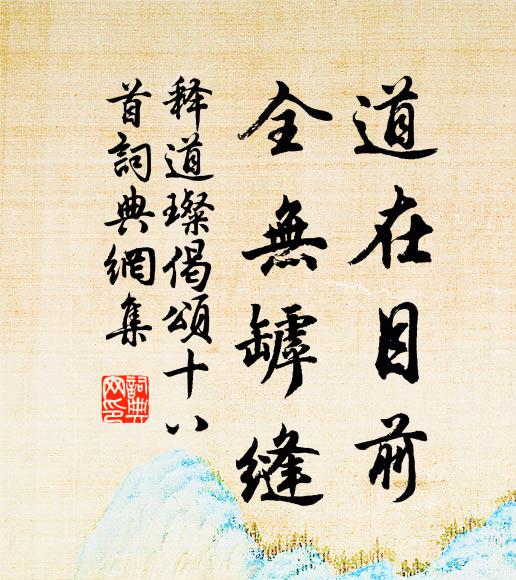 道在目前
全無罅縫
释道璨偈頌十八
首詞典網集
詞典
网印